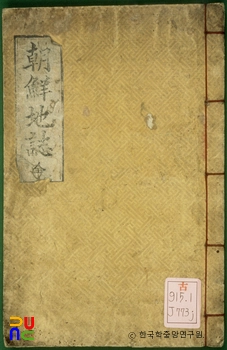 朝鮮地誌 全
古
915.1
J773j
ⓒ 한국학중앙연구원